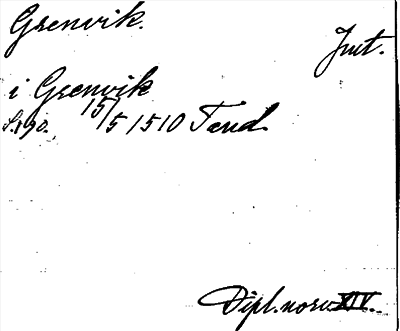 Grenvik.
Jmt.
i Grenvik
S. 190. 15/5 1510 Tand
Dipl. norv. XIV.